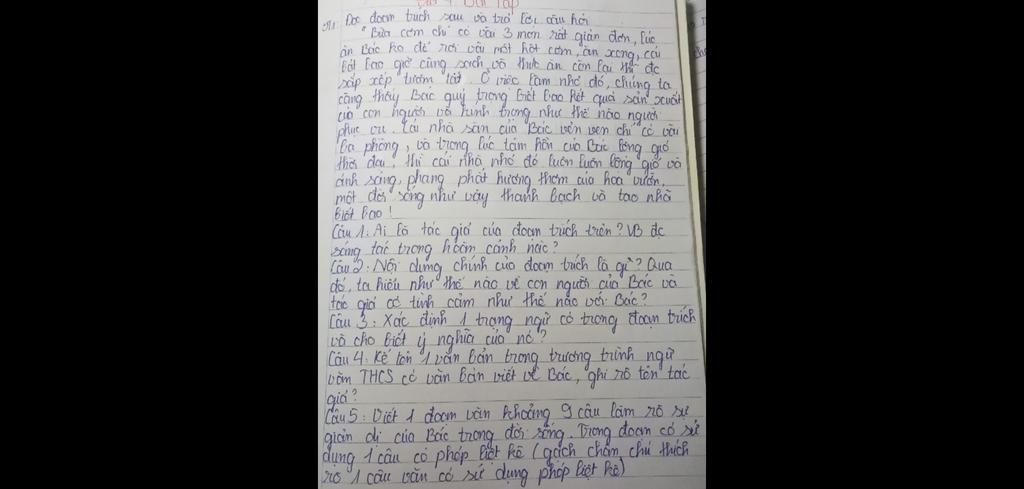 Bài 4: Bài tập
Đọc đoạn trích sau và trả lời câu hỏi
"Bữa cơm chỉ có vài 3 món rất giản đơn, lúc
ăn Bác ko để rơi vãi một hột cơm, ăn xong, cái
bát bao giờ cũng sạch và thức ăn còn lại thì đc
sắp xếp tươm tất. Ở việc làm nhỏ đó, chúng ta
càng thấy Bác quý trọng biết bao kết quả sản xuất
của con người và kính trọng như thế nào người
phục vụ. Cái nhà sàn của Bác vẻn vẹn chỉ có vài
ba phòng, và trong lúc tâm hồn của Bác lộng gió
thời đại, thì cái nhà nhỏ đó luôn luôn lộng gió và
ánh sáng, phảng phất hương thơm của hoa vườn,
một đời sống như vậy thanh bạch và tao nhã
biết bao!
Câu 1: Ai là tác giả của đoạn trích trên? VB đc
sáng tác trong hoàn cảnh nào?
Câu 2: Nội dung chính của đoạn trích là gì? Qua
đó, ta hiểu như thế nào về con người của Bác và
tác giả có tình cảm như thế nào với Bác?
Câu 3: Xác định 1 trạng ngữ có trong đoạn trích
và cho biết ý nghĩa của nó?
Câu 4: Kể tên 1 văn bản trong trương trình ngữ
văn THCS có văn bản viết về Bác, ghi rõ tên tác
giả?
Câu 5: Viết 1 đoạn văn khoảng 9 câu làm rõ sự
giản dị của Bác trong đời sống. Trong đoạn có sử
dụng 1 câu có phép liệt kê (gạch chân, chú thích
rõ 1 câu văn có sử dụng phép liệt kê)